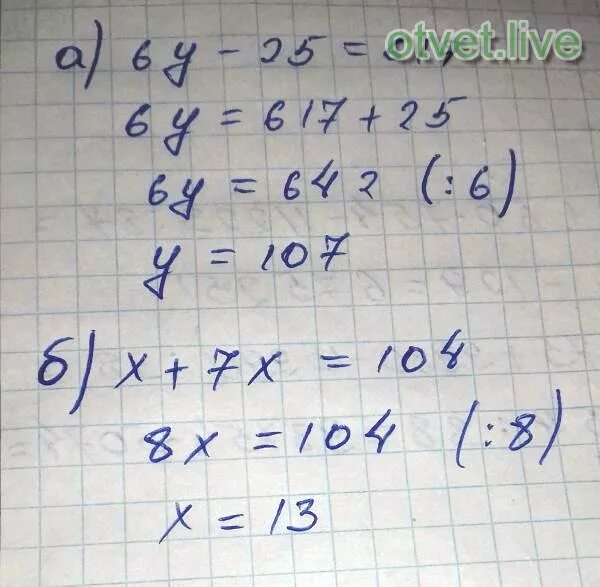 otvet.live
а) 6y - 25 =
6y = 617 + 25
6y = 642 (:6)
y = 107
б) x + 7x = 104
8x = 104 (:8)
x = 13